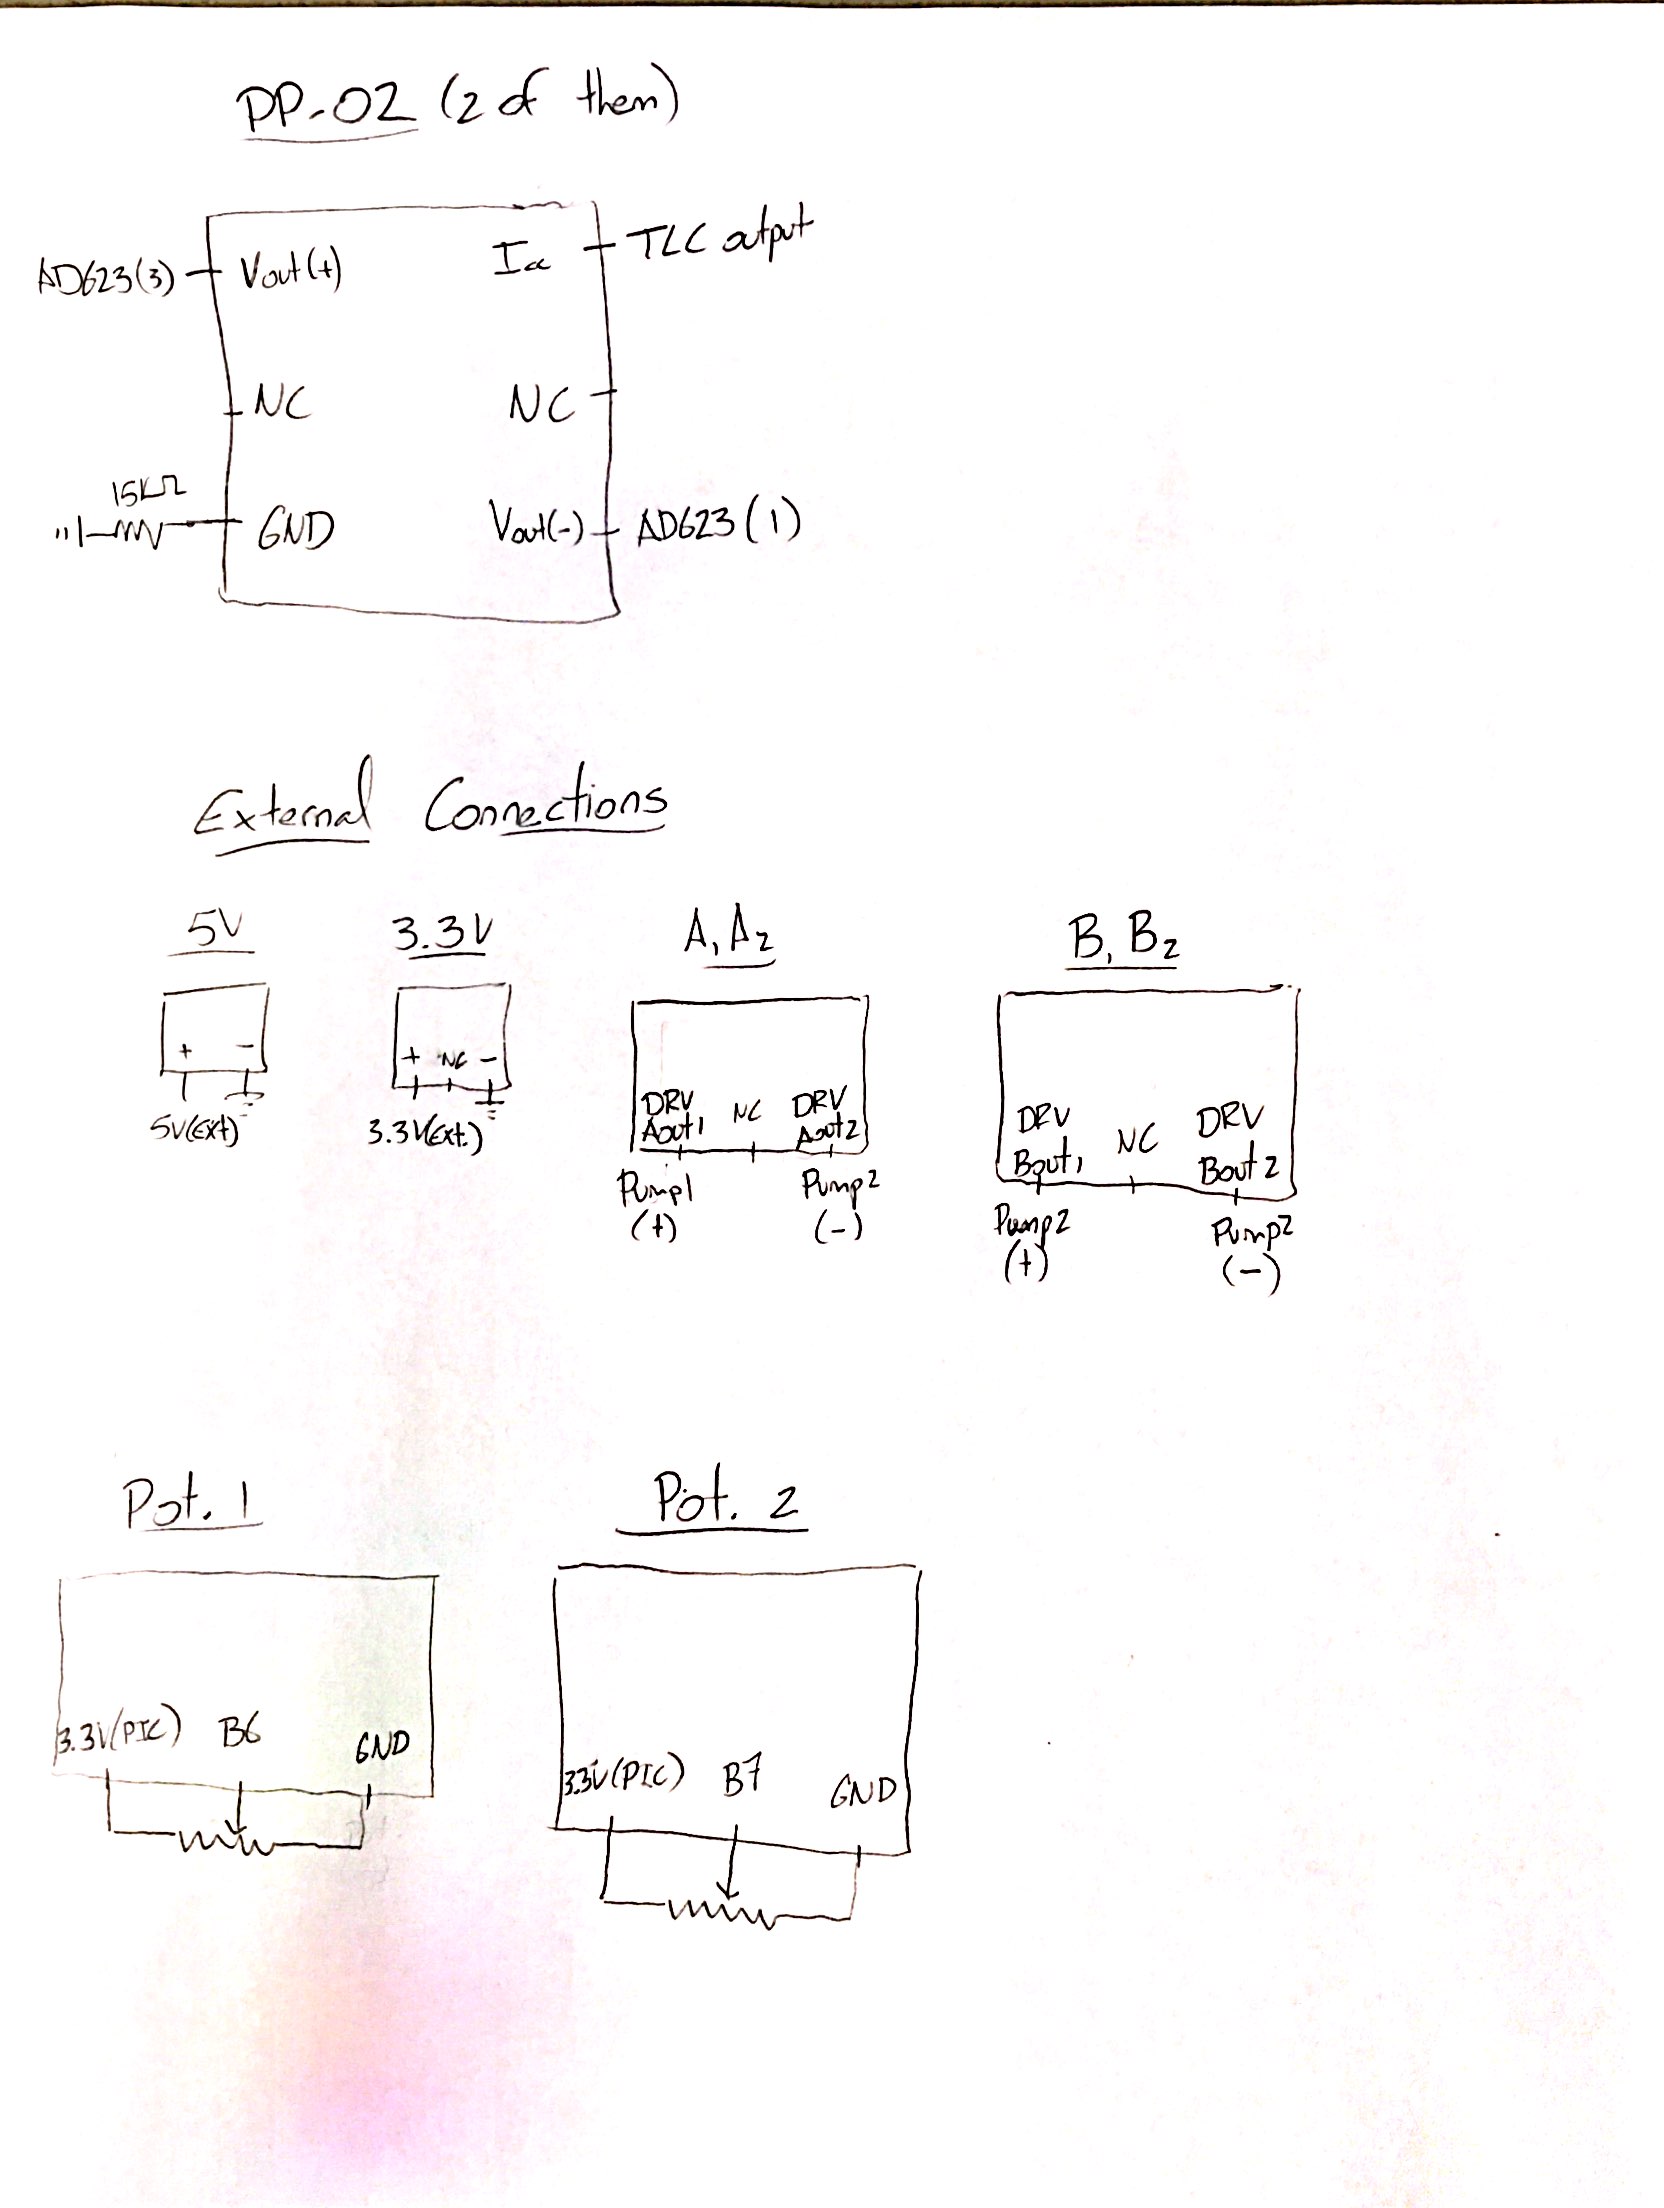 PP-02 (2 of them)
AD623(3) Vout(+) TLC output
NC NC
15KΩ
GND Vout(-) AD623(1)
External Connections
5V 3.3V A1A2 B1B2
+ - + NC -
5V(Ext) 3.3V(Ext.)
DRV Aout1 NC DRV Aout2
Pump1 (+) Pump2 (-)
DRV Bout1 NC DRV Bout2
Pump2 (+) Pump2 (-)
Pot. 1 Pot. 2
3.3V(PIC) B6 GND
3.3V(PIC) B7 GND